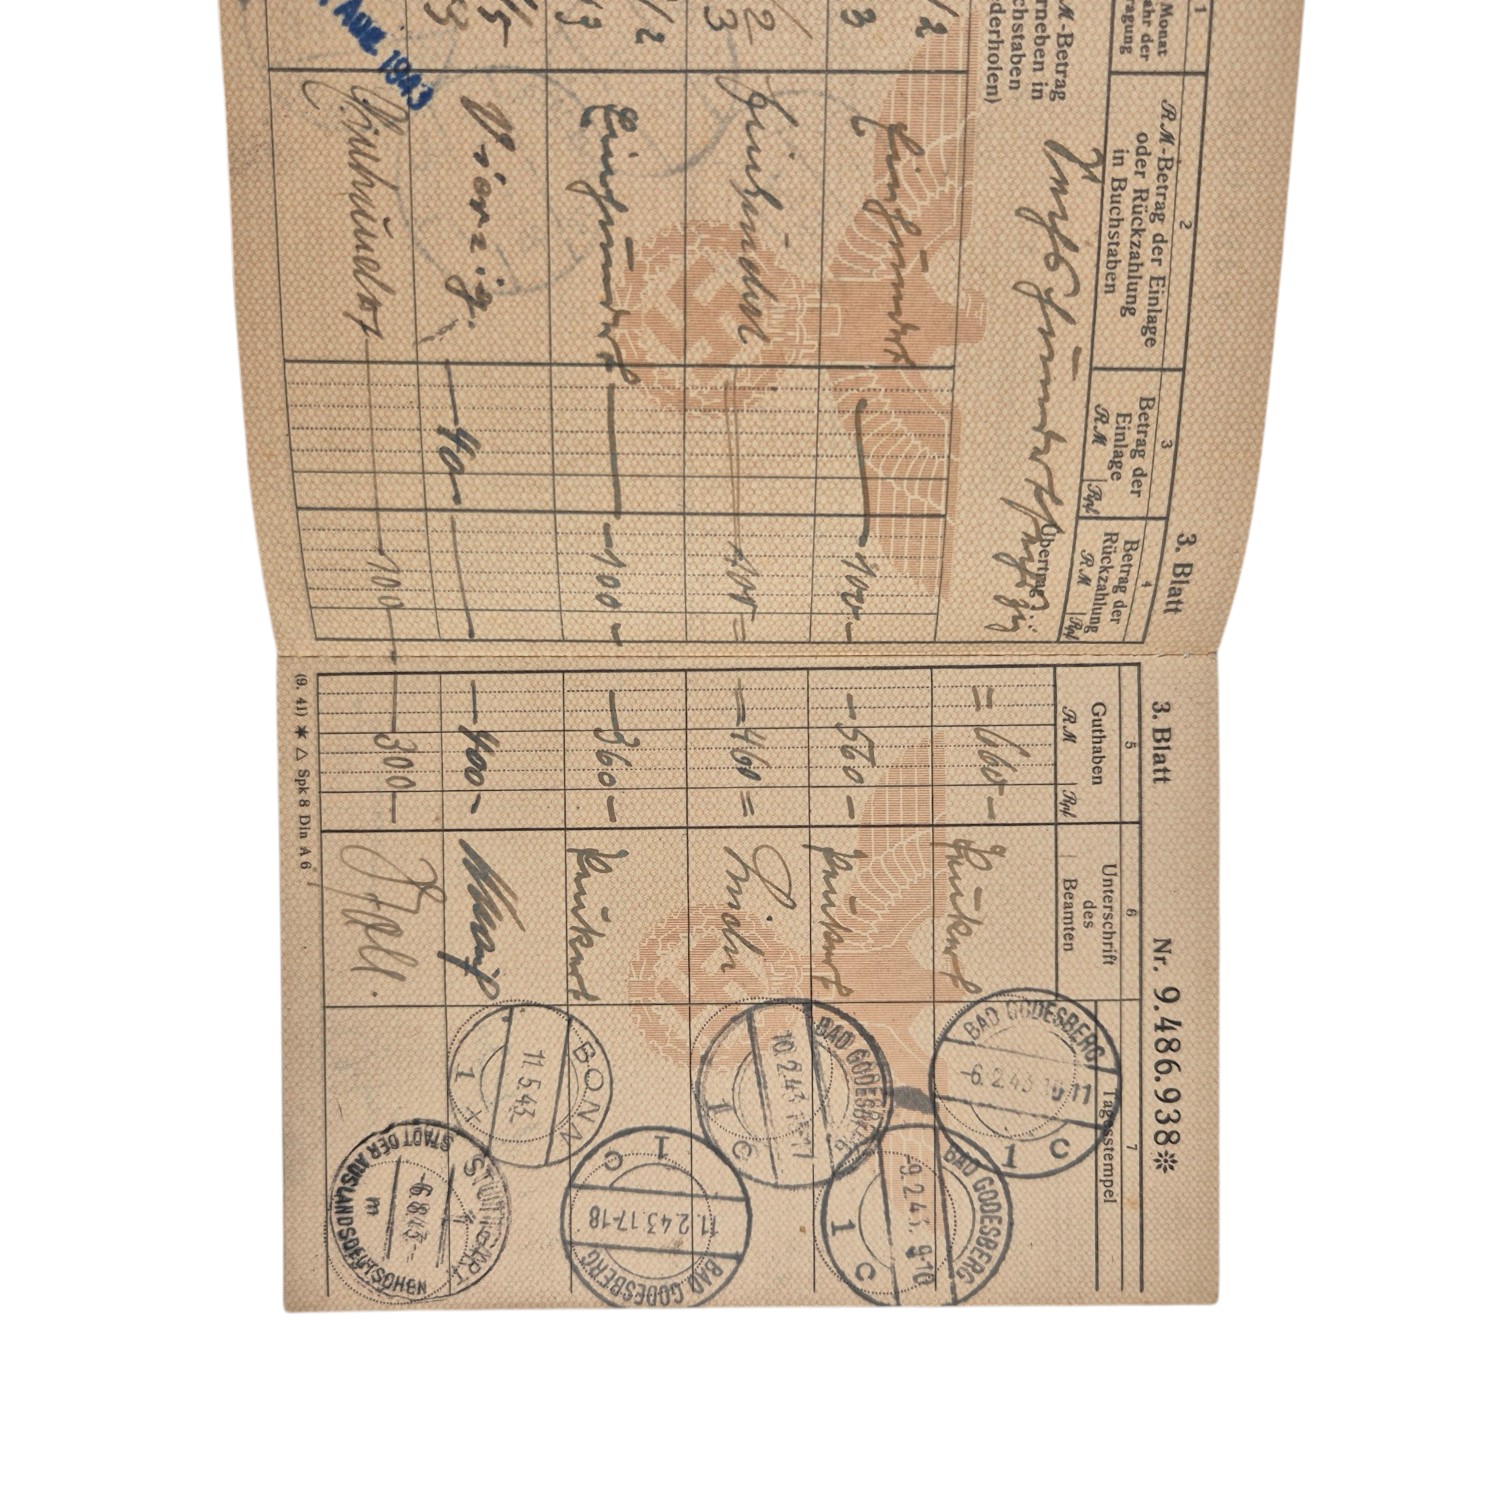 3. Blatt
1
2
3
4
Monat
R.M-Betrag der Einlage
oder Rückzahlung
in Buchstaben
Betrag der
Einlage
R.M Rpf
Betrag der
Rückzahlung
R.M Rpf
M-Betrag
rneben in
chstaben
derholen)
Übertrag
/2
3
Einhundert
— 100 —
/2
3
Einhundert
100 =
/2
Einhundert
— 100 —
/5
Vierzig.
— 40 —
AUG. 1943
Einhundert
— 100 —
3. Blatt
Nr. 9.486.938*
5
6
7
Guthaben
R.M Rpf
Unterschrift
des
Beamten
Tagesstempel
= 660 —
BAD GODESBERG
-6.2.43
1 C
— 560 —
BAD GODESBERG
-9.2.43. 9-10
1 C
= 460 =
BAD GODESBERG
10.2.43
1 C
— 360 —
BAD GODESBERG
11.2.43.17-18
1 C
— 400 —
BONN
11.5.43
1
— 300 —
STUTTGART
-6.8.43.-
m
STADT DER AUSLANDSDEUTSCHEN
(9. 41) ✶ △ Spk 8 Din A 6